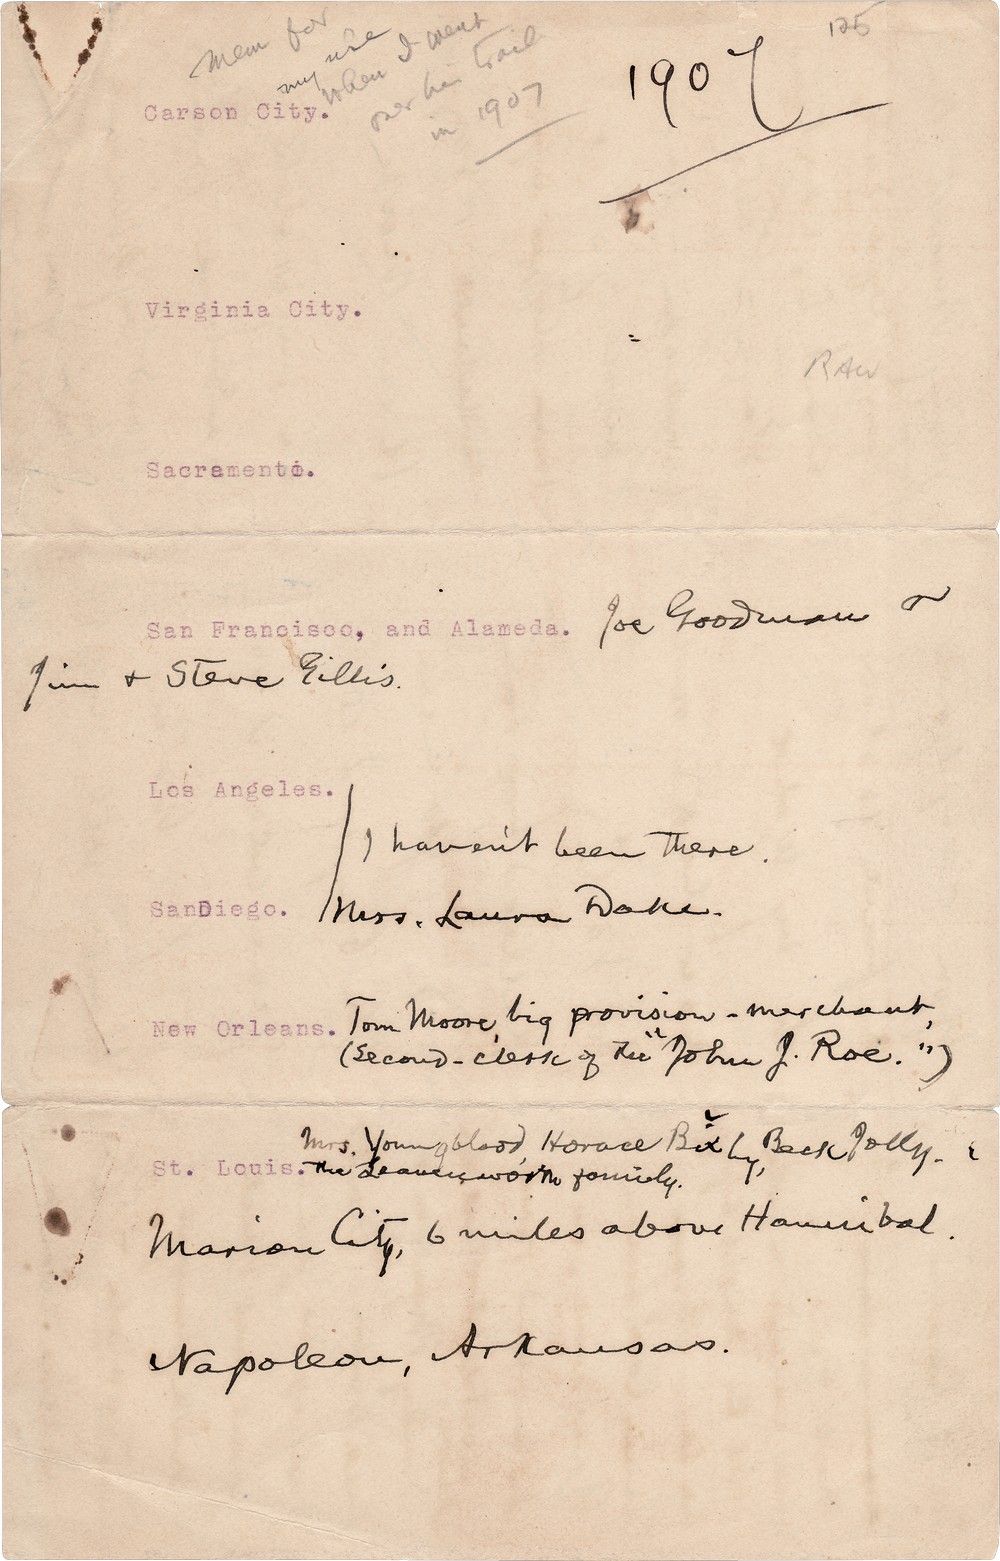 125
Mem for
my use
when I went
over his trail
in 1907
1907
Carson City.
Virginia City.
RAW
Sacramento.
San Francisco, and Alameda. Joe Goodman &
Jim & Steve Gillis.
Los Angeles.
I haven't been there.
SanDiego. Mrs. Laura Dake.
New Orleans. Tom Moore, big provision-merchant,
(second-clerk of the "John J. Roe.")
Mrs. Youngblood, Horace Bixby, Beck Jolly. &
St. Louis. the Leavenworth family.
Marion City, 6 miles above Hannibal.
Napoleon, Arkansas.